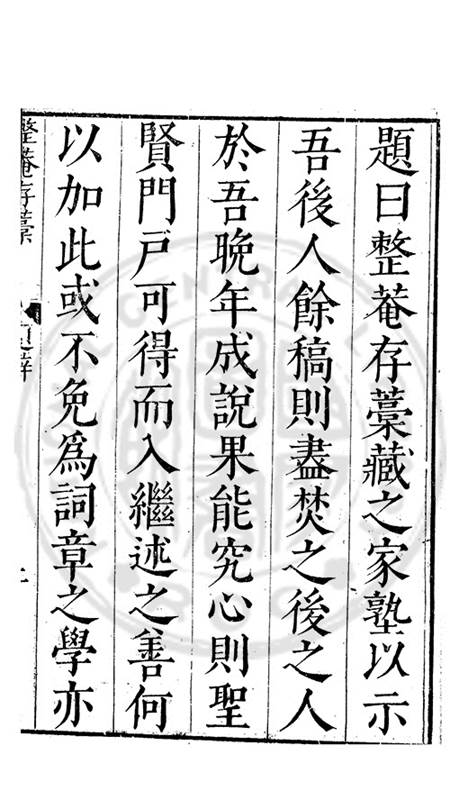 題曰整菴存藁藏之家塾以示
吾後人餘稿則盡焚之後之人
於吾晚年成說果能究心則聖
賢門戸可得而入繼述之善何
以加此或不免為詞章之學亦
整菴存藁
題辭